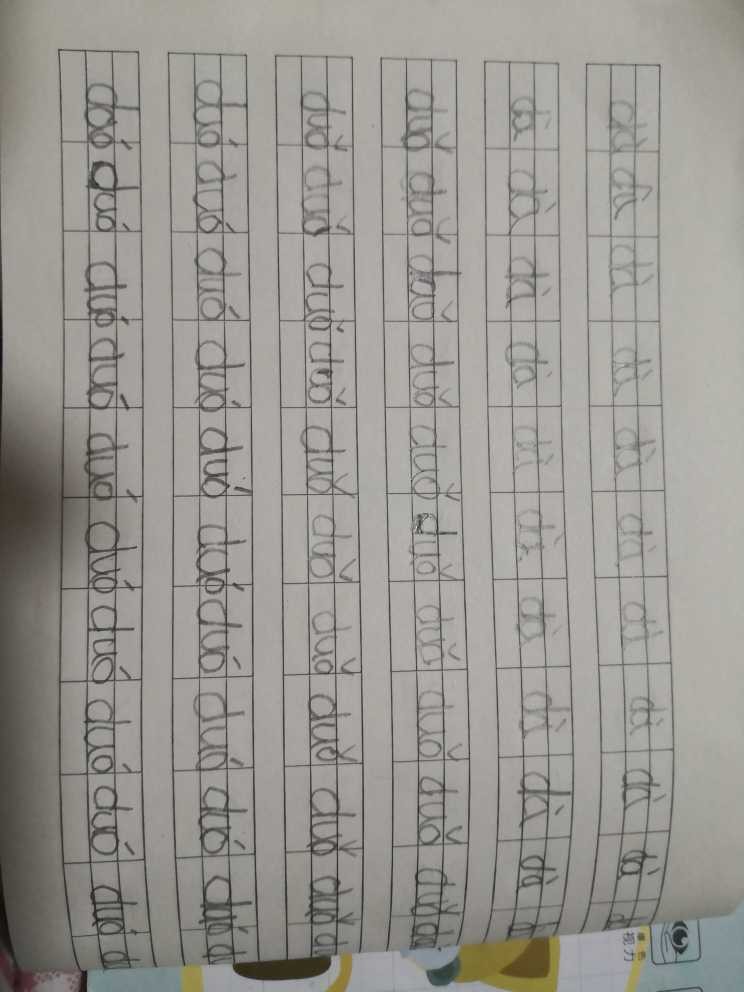 dà dà dà dà dà dà dà dà dà dà d
dà dà dà dà dà dà dà dà dà dà d
duǒ duǒ duǒ duǒ duǒ duǒ duǒ duǒ duǒ duǒ du
duǒ duǒ duǒ duǒ duǒ duǒ duǒ duǒ duǒ duǒ d
duó duó duó duó duó duó duó duó duó duó d
duó duó duó duó duó duó duó duó duó duó d
视力